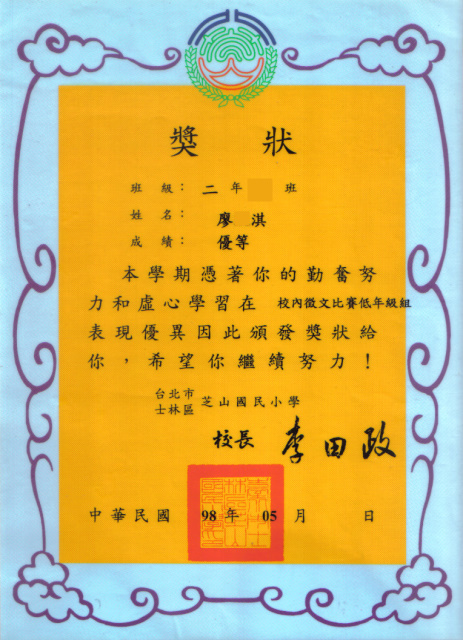 獎 狀
班 級： 二 年 班
姓 名： 廖 淇
成 績： 優等
本學期憑著你的勤奮努
力和虛心學習在 校內徵文比賽低年級組
表現優異因此頒發獎狀給
你，希望你繼續努力！
台北市
士林區 芝山國民小學
校長 李田政
中華民國 98 年 05 月 日